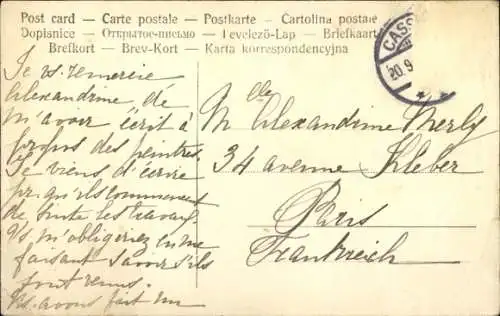 Post card — Carte postale — Postkarte — Cartolina postale
Dopisnice — Открытое письмо — Levelező-Lap — Briefkaart
Brefkort — Brev-Kort — Karta korrespondencyjna
CASS
20.9
Je vs. remercie
Alexandrine de
m'avoir écrit à
propos des peintres.
Je viens d'écrire
pr. qu'ils commencent
de suite les travaux.
Vs. m'obligeriez en me
faisant savoir s'ils
sont venus.
Ns. avons fait un
Mlle Alexandrine Merly
34 avenue Kléber
Paris
Frankreich